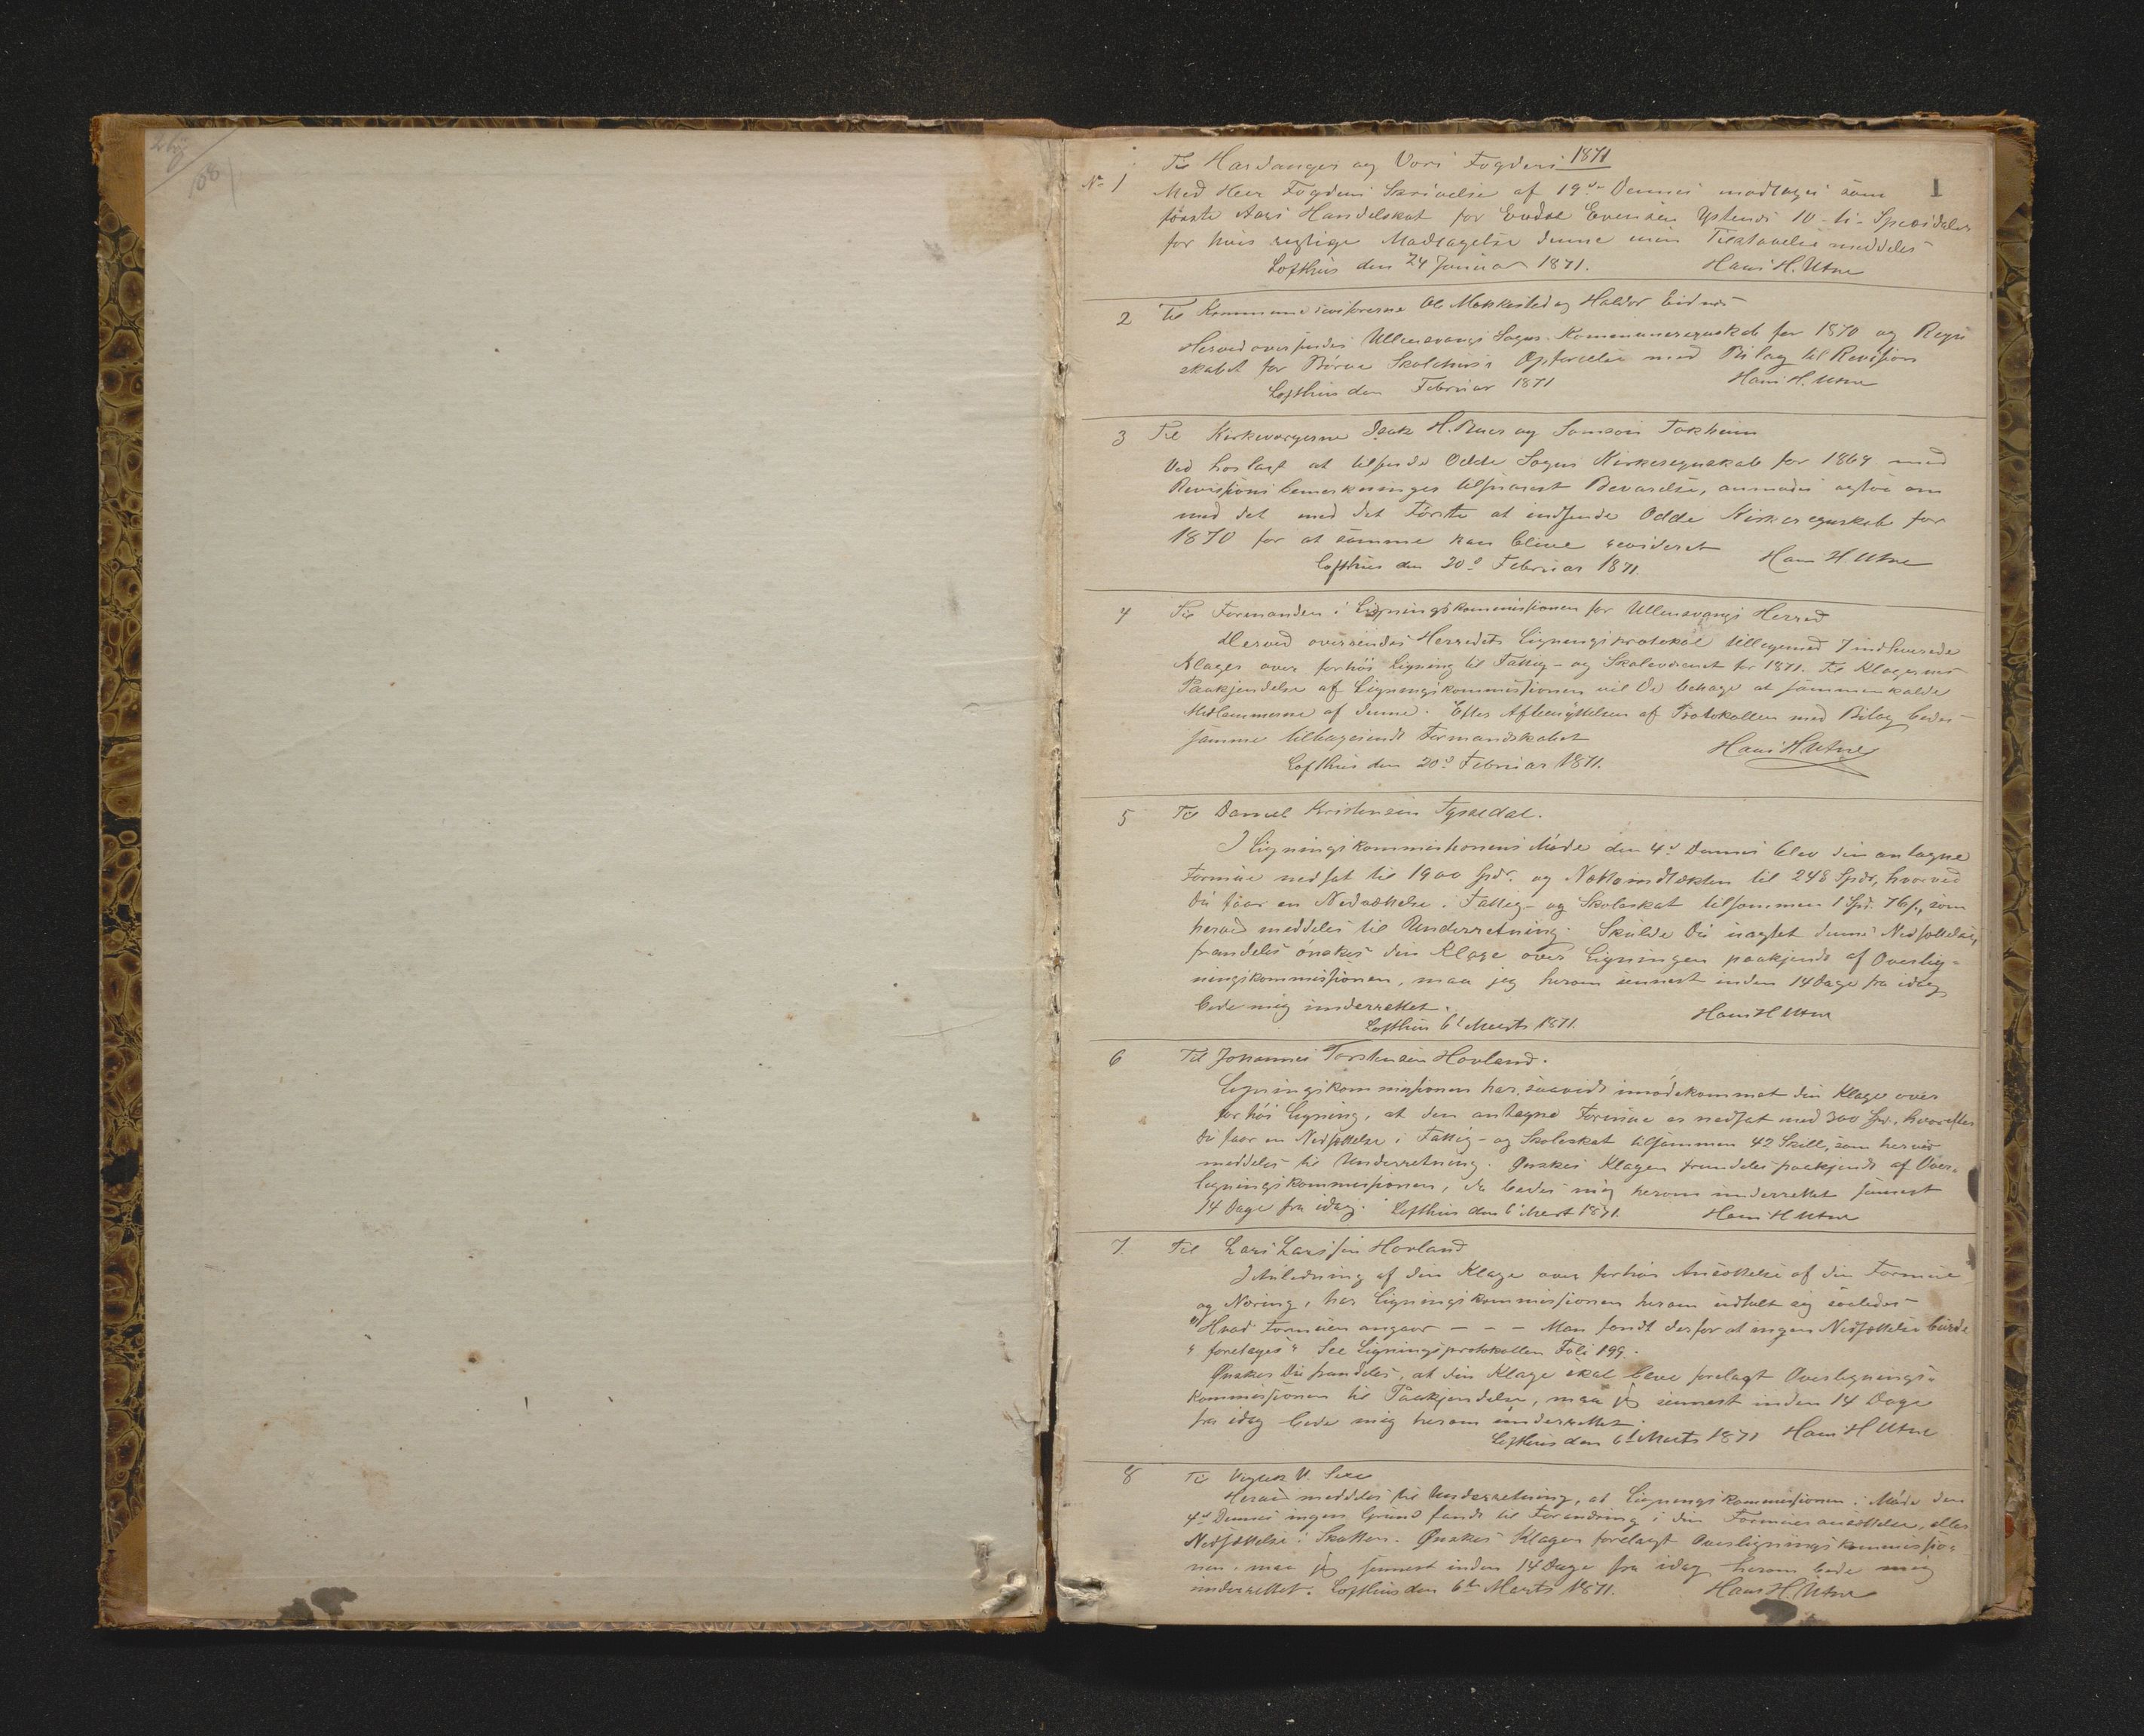 108
Til Hardanger og Vors Fogderi 1871
1
No 1 Med Herr Fogdens Skrivelse af 19de Dennes modtages som
første Aars Handelskat for Endre Evensen Ystenes 10 - ti - Speсidaler
for hvis rigtige Modtagelse denne min Tilstaaelse meddeles
Lofthus den 24 Januar 1871. Hans H. Utne
2 Til Kommunerevisorerne Ole Mækkested og Haldor Eidnes
Herved oversendes Ullensvangs Sogns Kommuneregnskab for 1870 og Regn
skabet for Børve Skolehus's Opførelse med Bilag til Revision
Lofthus den Februar 1871 Hans H. Utne
3 Til Kirkevergerne Isak H. Buer og Samson Tokheim
Ved hoslagt at tilsende Odde Sogns Kirkeregnskab for 1869 med
Revisions bemerkninger til Besvarelse, anmodes om
med det med det Første at indsende Odde Kirkeregnskab for
1870 for at samme kan blive revideret
Lofthus den 20d Februar 1871. Hans H. Utne
4 Til Formanden i Ligningskommissionen for Ullensvangs Herred
Herved oversendes Herredets Ligningsprotokol tilligemed 7 indleverede
Klager over forhøi Ligning til Fattig- og Skolevæsenet for 1871. Til Klagernes
Paakjendelse af Ligningskommissionen vil De behage at sammenkalde
Medlemmerne af denne. Efter Afbenyttelsen af Protokollen med Bilag bedes
samme tilbagesendt Formandskabet
Lofthus den 20d Februar 1871. Hans H Utne
5 Til Daniel Kristensen Tyssedal.
I Ligningskommissionens Møde den 4d Dennes blev din antagne
Formue nedsat til 1900 Spdr. og Nettoindtækten til 248 Spdr, hvorved
Du faar en Nedsættelse i Fattig- og Skoleskat tilsammen 1 Spd. 76 s., som
herved meddeles til Underretning. Skulde Du uagtet denne Nedsættelse,
fremdeles ønskes din Klage over Ligningen paakjendt af Overlig-
ningskommissionen, maa jeg herom senest inden 14 Dage fra idag
bede mig underrettet.
Lofthus 6t Marts 1871. Hans H Utne
6 Til Johannes Torstensen Hovland.
Ligningskommissionen har saavidt imødekommet din Klage over
for høi Ligning, at den antagne Formue er nedsat med 300 Spd., hvorefter
Du faar en Nedsættelse i Fattig- og Skoleskat tilsammen 42 Skill, som herved
meddeles til Underretning. Ønskes Klagen fremdeles paakjendt af Over-
ligningskommissionen, da bedes mig herom underrettet senest
14 Dage fra idag. Lofthus den 6t Marts 1871. Hans H Utne
7. Til Lars Larssen Hovland
I Anledning af din Klage over forhøi Ansættelse af din Formue
og Næring, har Ligningskommissionen herom udtalt sig saaledes
"Hvad Formuen angaar - - - Man fandt derfor at ingen Nedsættelse burde
" foretages" See Ligningsprotokollen Foli 199.
Ønsker Du fremdeles, at din Klage skal blive forelagt Overlignings-
kommissionen til Paakjendelse, maa jeg senest inden 14 Dage
fra idag bede mig herom underrettet.
Lofthus den 6t Marts 1871 Hans H Utne
8 Til Vigleik V.
Herved meddeles til Underretning, at Ligningskommissionen i Møde den
4d Dennes ingen Grund fandt til Forandring i din Formuesansættelse, eller
Nedsættelse i Skatten. Ønskes Klagen forelagt Overligningskommissio-
nen, maa jeg senest inden 14 Dage fra idag herom bede mig
underrettet. Lofthus den 6te Marts 1871. Hans H. Utne